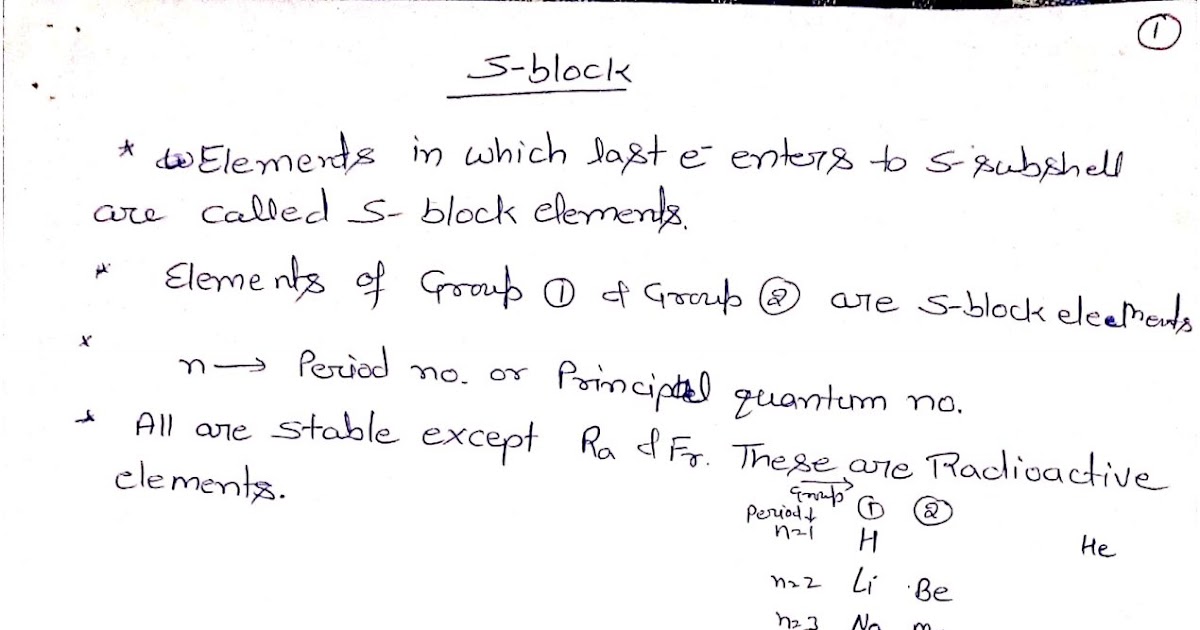 ①
S-block
* Elements in which last e⁻ enters to s-subshell
are called S- block elements.
* Elements of Group ① & Group ② are s-block eleements
x n → Period no. or Principal quantum no.
* All are stable except Ra & Fr. These are Radioactive
elements.
Group → ① ②
Period ↓
n=1 H He
n=2 Li Be
n=3 Na